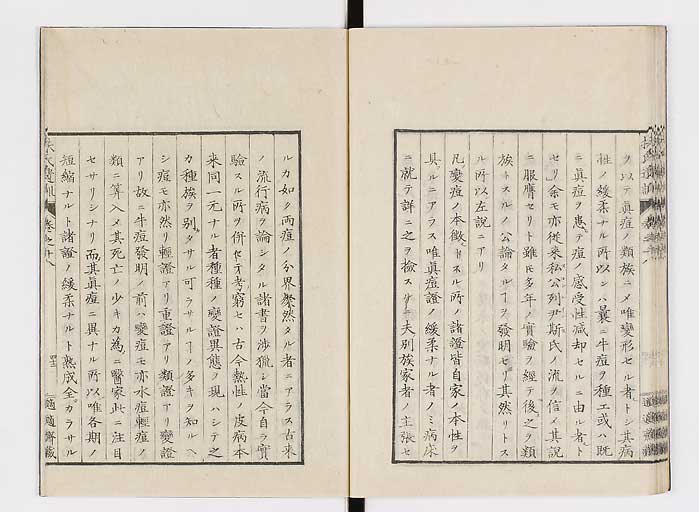 ヲ以テ眞痘ノ類族ニメ唯變形セル者トシ其病
性ノ緩柔ナル所以ンハ曩ニ牛痘ヲ種エ或ハ既
ニ眞痘ヲ患テ痘ノ感受性減却セルニ由ル者ト
セリ余モ亦從来私公列尹斯氏ノ流ヲ信メ其説
ニ服膺セリト雖モ多年ノ實驗ヲ經テ後之ヲ類
族トスルノ公論タルヿヲ發明セリ其然リトス
ル所以左説ニアリ
凡變痘ノ本徴トスル所ノ諸證皆自家ノ本性ヲ
具ルニアラス唯眞痘證ノ緩柔ナル者ノミ病床
ニ就テ詳ニ之ヲ撿スルニ夫別族家者ノ主張セ
ルカ如ク両痘ノ分界粲然タル者ニアラス古来
ノ流行病ヲ論シタル諸書ヲ渉獵シ當今自ラ實
驗スル所ヲ併セテ考窮セハ古今熱性ノ皮病本
来同一元ナル者種種ノ變證異態ヲ現ハシテ之
カ種族ヲ別タサル可ラサルヿノ多キヲ知ルヘ
シ痘モ亦然リ輕證アリ重證アリ類證アリ變證
アリ故ニ牛痘發明ノ前ハ變痘モ亦水痘輕痘ノ
類ニ算入メ其死亡ノ少キカ為ニ醫家此ニ注目
セサリシナリ而其眞痘ニ異ナル所以唯各期ノ
短縮ナルト諸證ノ緩柔ナルト熟成全カラサル
扶氏遺訓 卷之廿八 適適齋藏